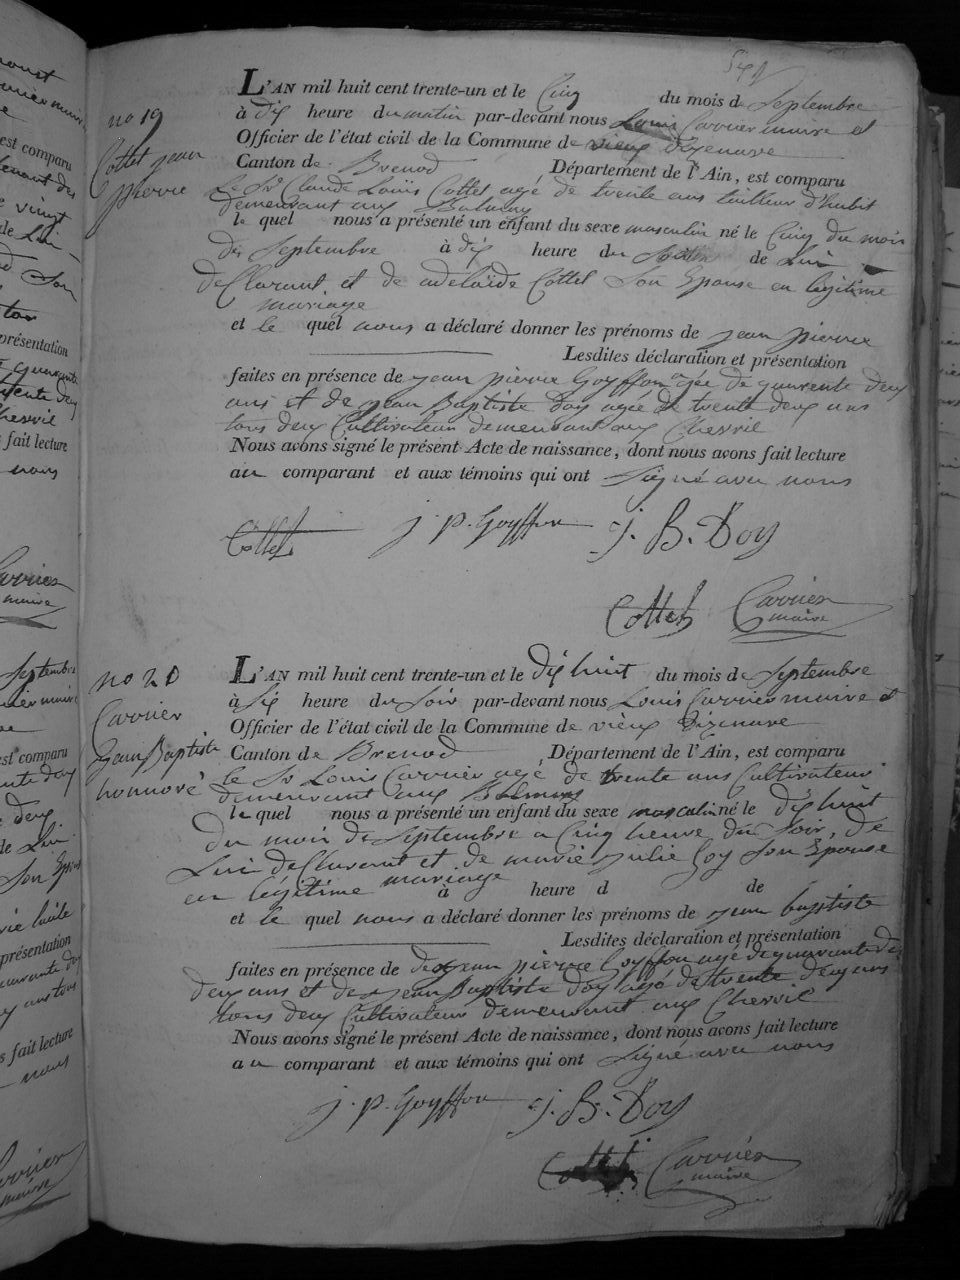 Sept
no 19
Cottet jean
pierre
L'AN mil huit cent trente-un et le Cinq du mois d Septembre
à dix heure du matin par-devant nous Louis Carrier maire et
Officier de l'état civil de la Commune de vieux d'izenave
Canton de Brenod Département de l'Ain, est comparu
Le Sr Claude Louis Cottet agé de trente ans tailleur d'habit
demeurant aux Balmay
le quel nous a présenté un enfant du sexe masculin né le Cinq du mois
de Septembre à dix heure du de Lui
déClarant et de adelaide Cottet Son Epouse en légitime
mariage
et le quel nous a déclaré donner les prénoms de jean pierre
Lesdites déclaration et présentation
faites en présence de jean pierre Goyffon agée de quarente deux
ans et de jean Baptiste Doy agée de trente deux ans
tous deux Cultivateur demeurant aux Chevril
Nous avons signé le présent Acte de naissance, dont nous avons fait lecture
au comparant et aux témoins qui ont Signé avec nous
Cottet j. p. Goyffon j. B. Doy
Cottet Carrier
maire
no 20
Carrier
jean Baptiste
honnoré
L'AN mil huit cent trente-un et le dix huit du mois d Septembre
à Six heure du Soir par-devant nous Louis Carrier maire et
Officier de l'état civil de la Commune de vieux dizenave
Canton de Brenod Département de l'Ain, est comparu
le Sr Louis Carrier agé de trente ans Cultivateur
demeurant aux Balmay
le quel nous a présenté un enfant du sexe masculin né le dix huit
du mois de Septembre a Cinq heure du Soir, de
Lui déClarant et de marie julie Goy Son Epouse
en légitime mariage à heure d de
et le quel nous a déclaré donner les prénoms de jean baptiste
Lesdites déclaration et présentation
faites en présence de jean pierre Goyffon agé de quarante
deux ans et de jean Baptiste Doy agé de trente deux ans
tous deux Cultivateur demeurant aux Chevril
Nous avons signé le présent Acte de naissance, dont nous avons fait lecture
au comparant et aux témoins qui ont Signé avec nous
j. p. Goyffon j. B. Doy
Cottet Carrier
maire